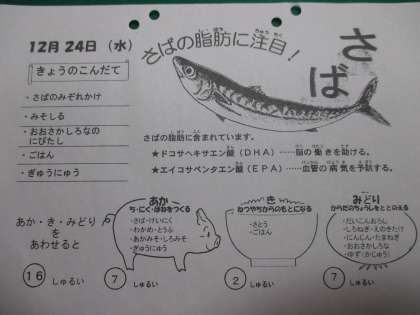 12月24日（水）
さばの脂肪に注目！
さば
きょうのこんだて
・さばのみぞれかけ
・みそしる
・おおさかしろなの
にびたし
・ごはん
・ぎゅうにゅう
さばの脂肪に含まれています。
★ドコサヘキサエン酸（DHA）……脳の働きを助ける。
★エイコサペンタエン酸（EPA）……血管の病気を予防する。
あか・き・みどり
をあわせると
16しゅるい
あか
ち・にく・ほねをつくる
・さば・けいにく
・わかめ・とうふ
・あかみそ・しろみそ
・ぎゅうにゅう
7しゅるい
き
ねつやちからのもとになる
・さとう
・ごはん
2しゅるい
みどり
からだのちょうしをととのえる
・だいこんおろし
・しろねぎ・えのきたけ
・にんじん・たまねぎ
・おおさかしろな
・ゆず（かじゅう）
7しゅるい